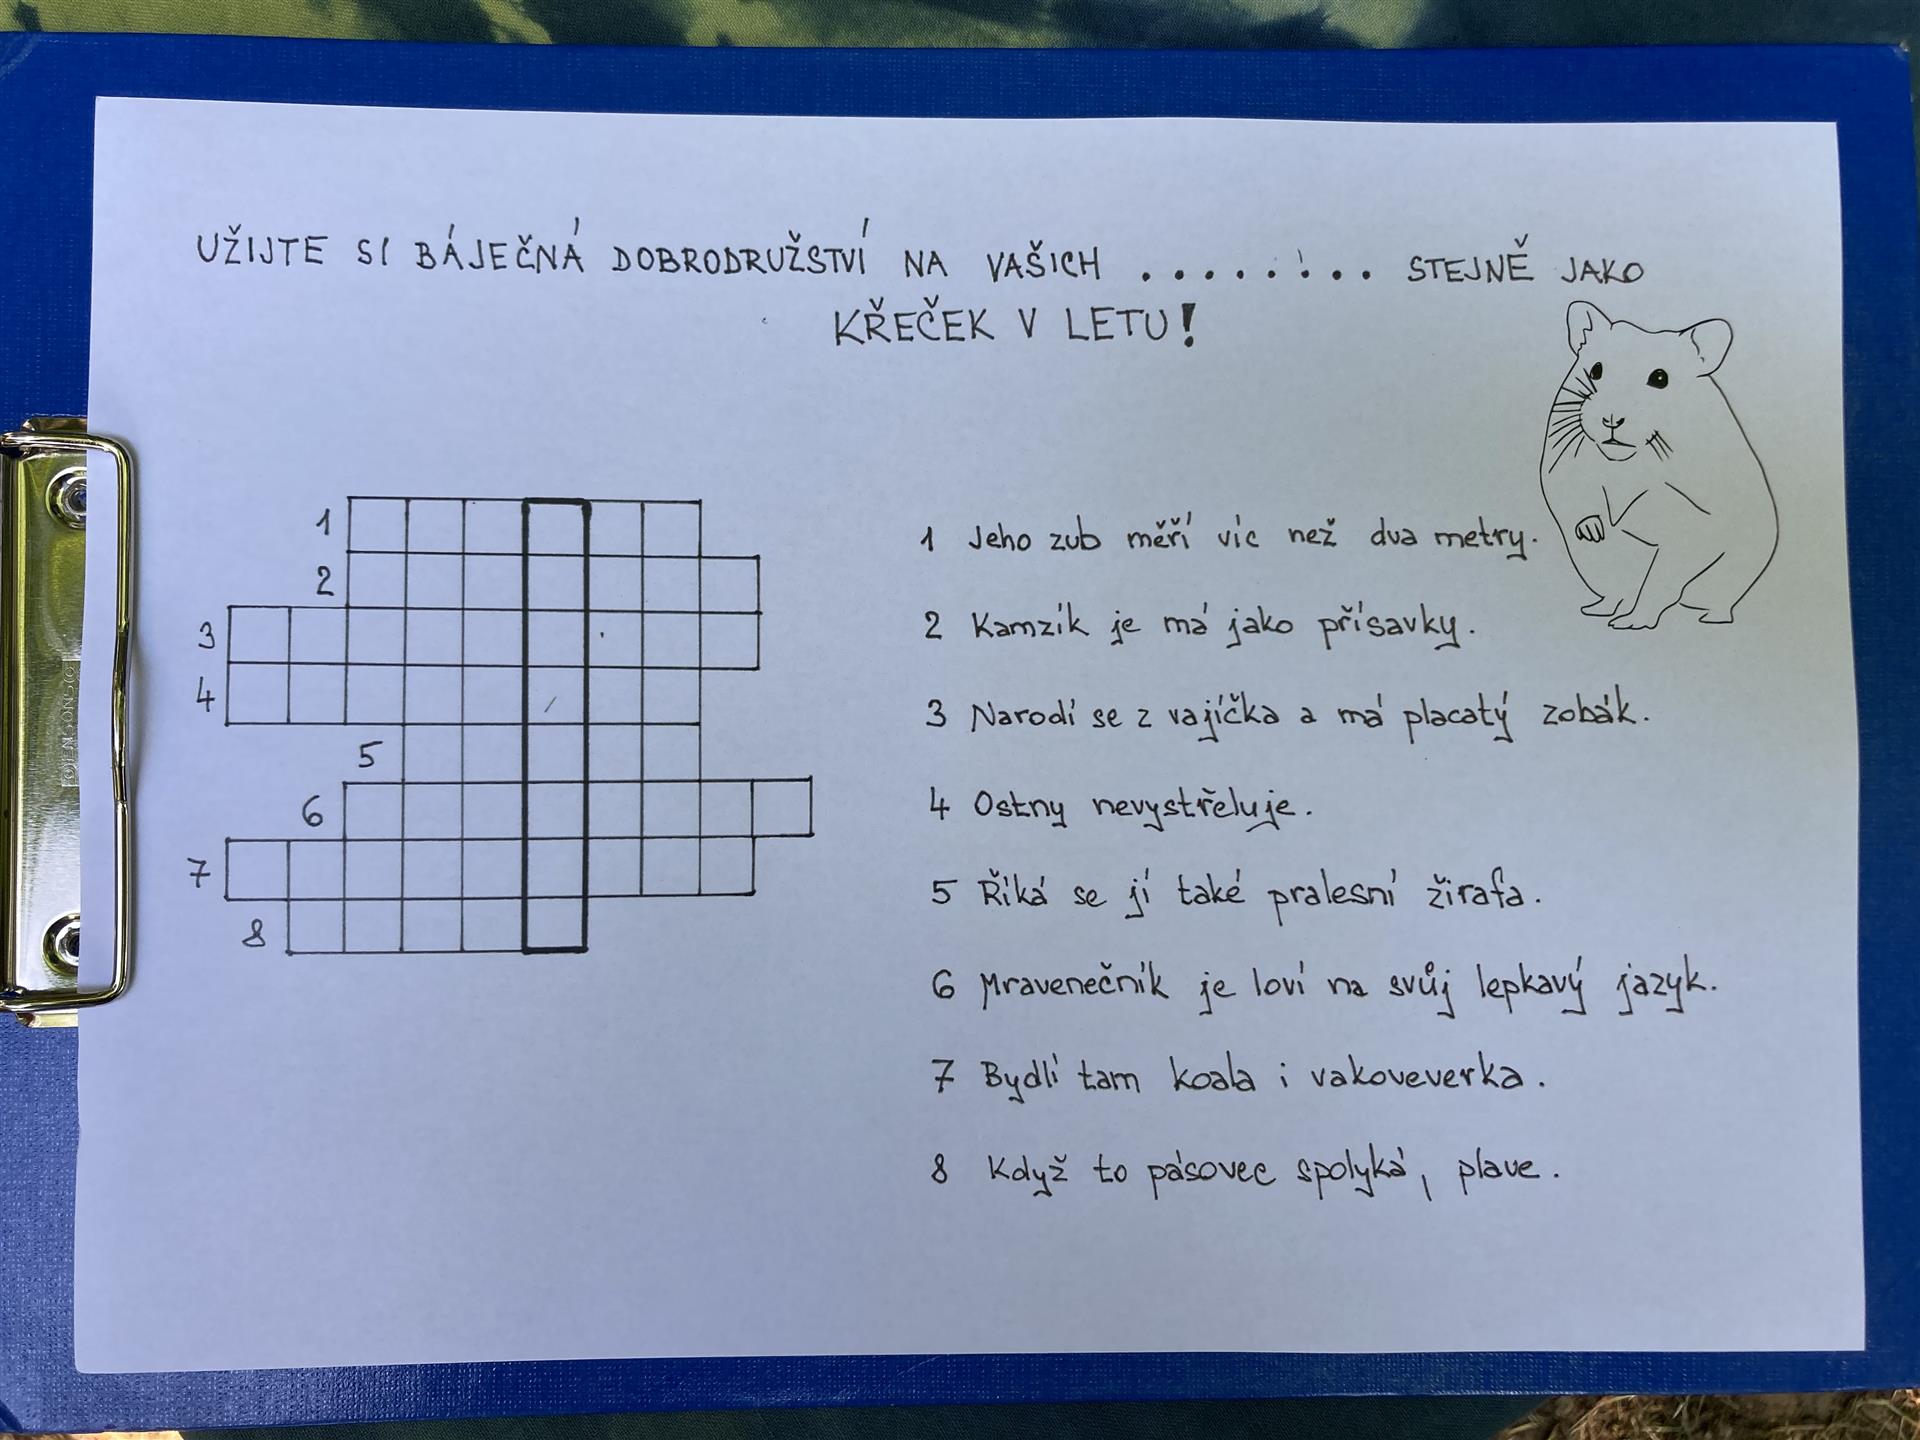 UŽIJTE SI BÁJEČNÁ DOBRODRUŽSTVÍ NA VAŠICH ........ STEJNĚ JAKO
KŘEČEK V LETU!
1
2
3
4
5
6
7
8
1 Jeho zub měří víc než dva metry.
2 Kamzík je má jako přísavky.
3 Narodí se z vajíčka a má placatý zobák.
4 Ostny nevystřeluje.
5 Říká se jí také pralesní žirafa.
6 Mravenečník je loví na svůj lepkavý jazyk.
7 Bydlí tam koala i vakoveverka.
8 Když to pásovec spolyká, plave.